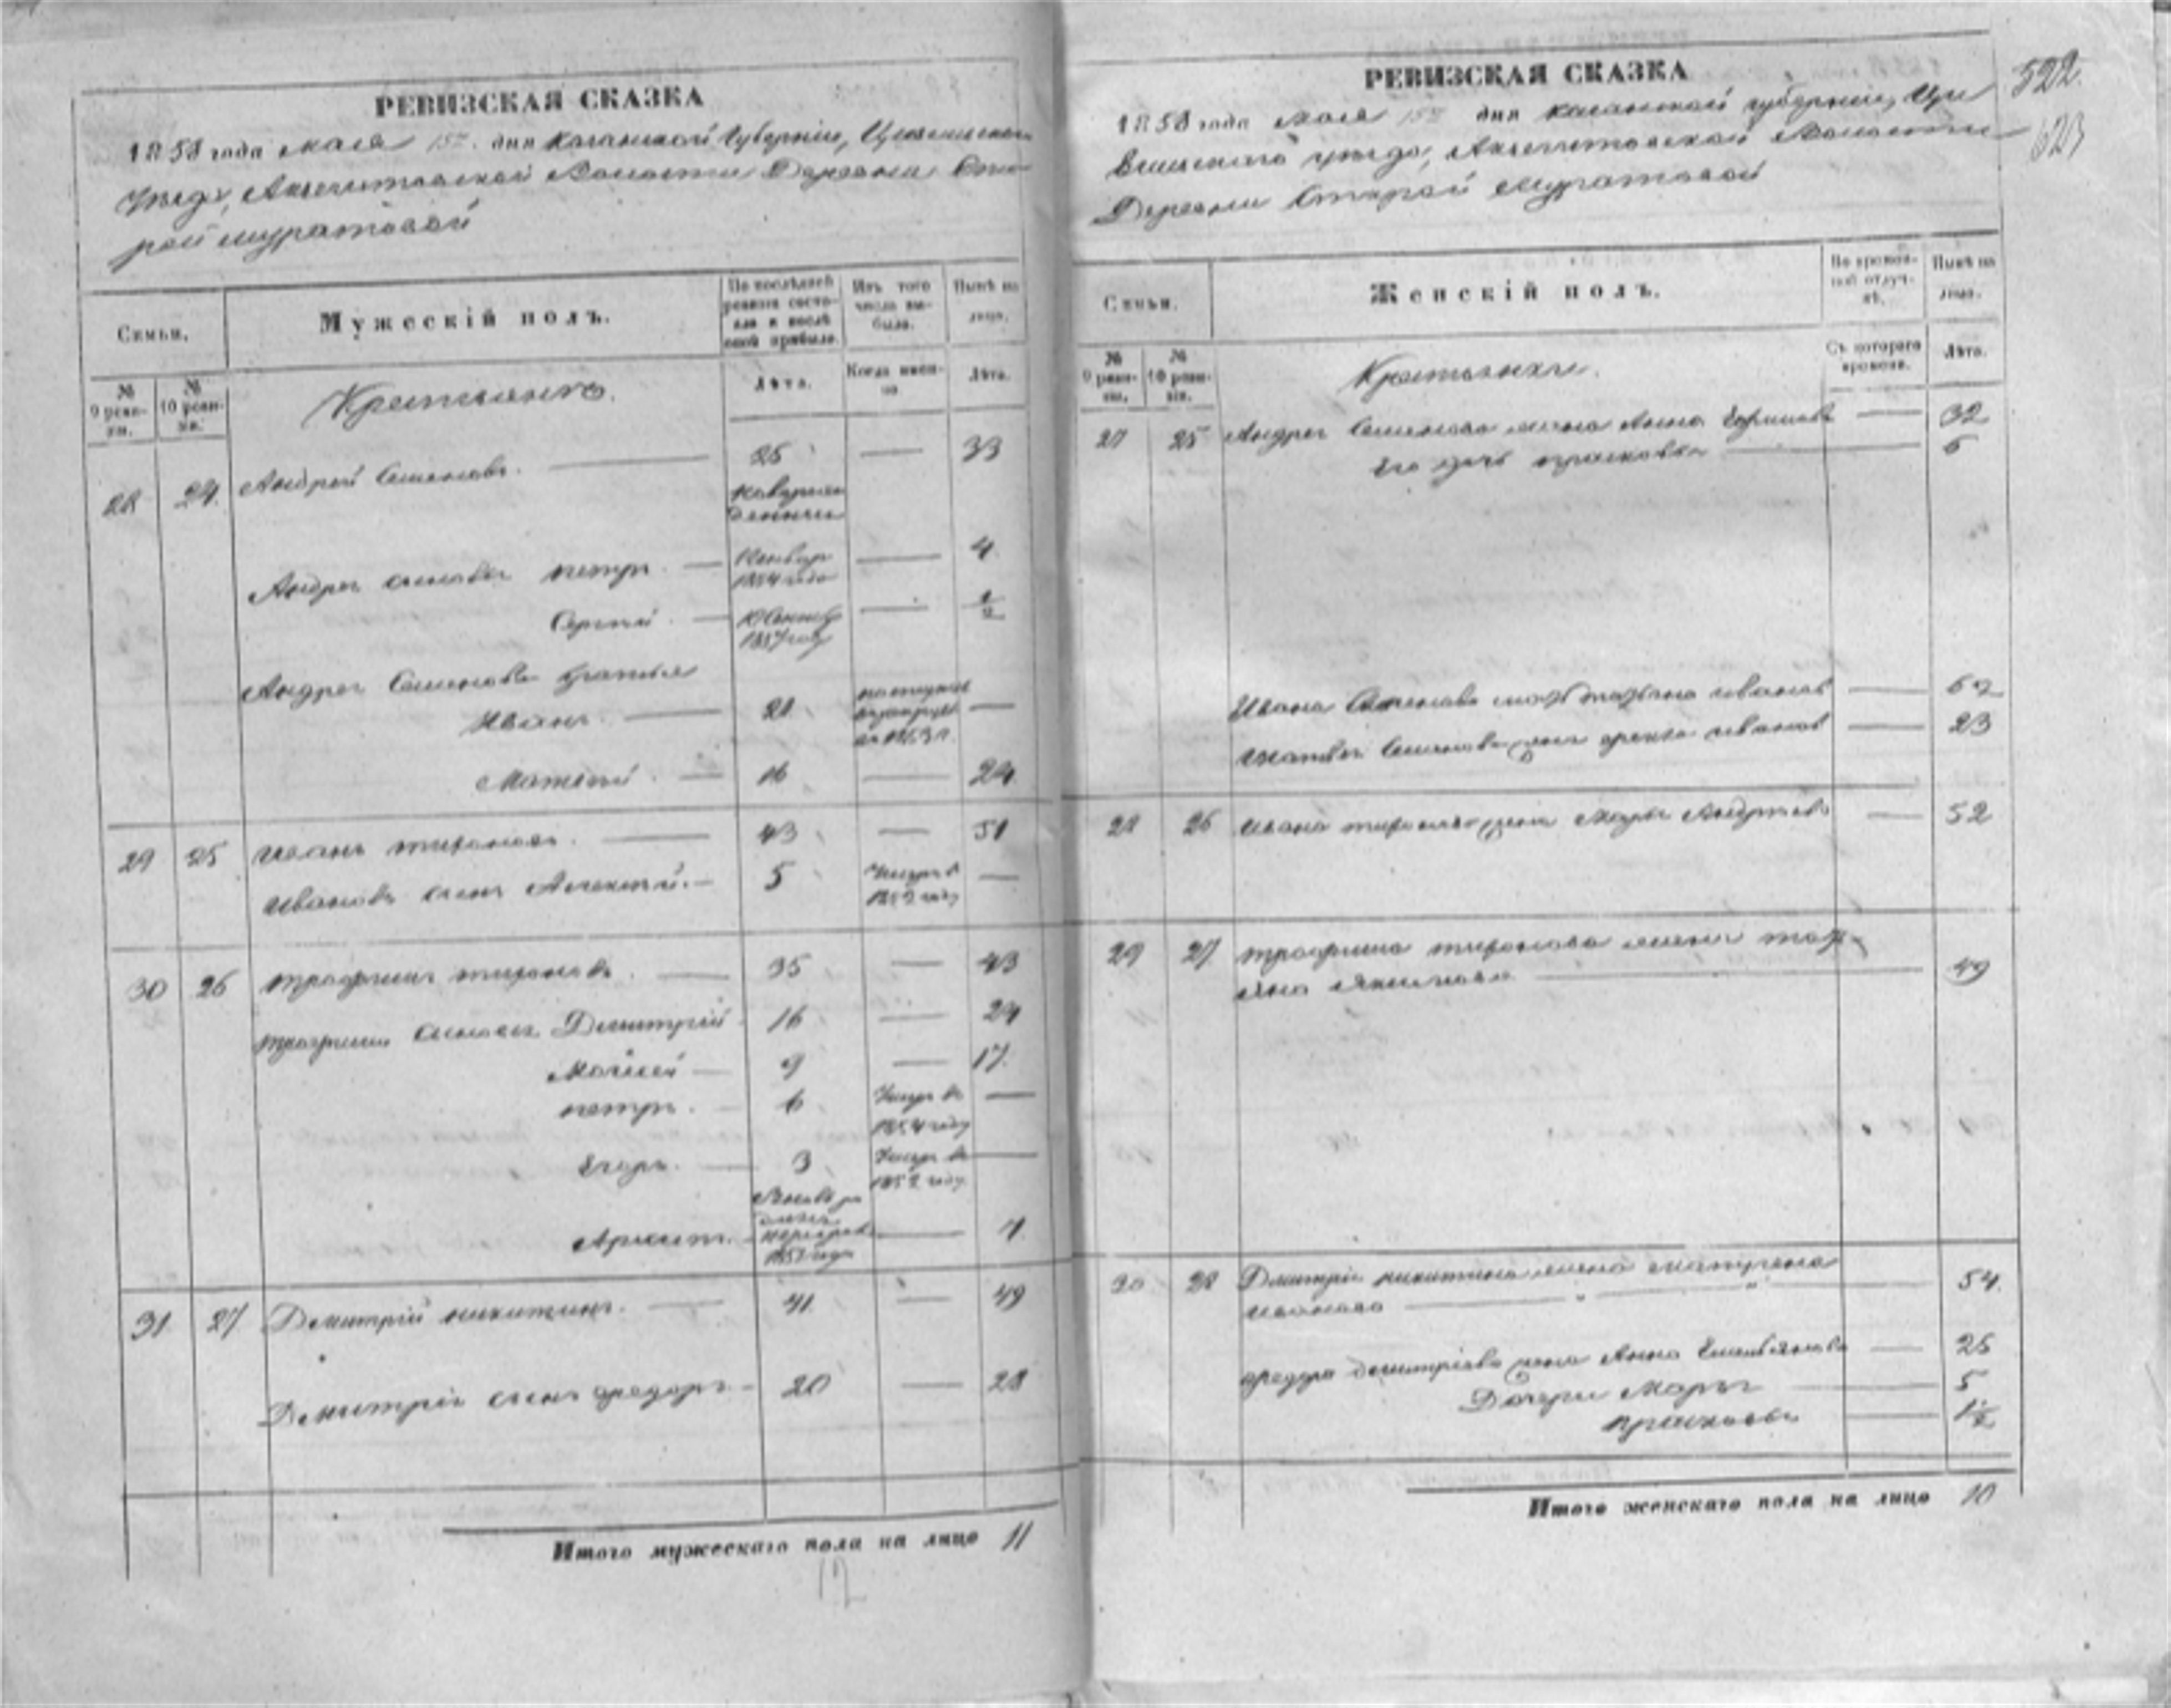 РЕВИЗСКАЯ СКАЗКА
1858 года мая 15го дня Казанской Губернии, Цивильскаго
Уѣзда, Волости Деревни Ста
рой Муратовой
Семьи.
Мужескій полъ.
По послѣдней ревизіи состояло и послѣ оной прибыло.
Изъ того числа выбыло.
Нынѣ на лицо.
№ 9 ревизіи.
№ 10 ревизіи.
Крестьянъ.
Лѣта.
Когда именно.
Лѣта.
28 24 Андрей Семеновъ. 25 — 33
Андрея сыновья петръ — Январ 1854 года — 4
Сергѣй — 1857 году — 1/2
Андрея Семенова братья
Иванъ — 21 1853 г. —
Матвѣй — 16 — 24
29 25 Иванъ тихоновъ — 43 — 51
Ивановъ сынъ Алексѣй — 5 Умеръ въ 1852 году —
30 26 трофимъ тихоновъ — 35 — 43
трофима сыновья Дмитрій 16 — 24
Моисей — 9 — 17
петръ — 6 Умеръ въ 1854 году —
Егоръ — 3 Умеръ въ 1852 году —
— 4
31 27 Дмитрій никитинъ — 41 — 49
Дмитрія сынъ федоръ — 20 — 28
Итого мужескаго пола на лицо 11
12
522.
523
РЕВИЗСКАЯ СКАЗКА
1858 года мая 15го дня казанской губерніи, Ци
вильскаго уѣзда, Волости
Деревни Старой Муратовой
Семьи.
Женскій полъ.
Во временной отлучкѣ.
Нынѣ на лицо.
№ 9 ревизіи.
№ 10 ревизіи.
Крестьянки.
Съ котораго времени.
Лѣта.
27 25 Андрея Семенова жена Анна — 32
Его дочь прасковья — 6
Ивана Семенова мать татьяна иванова — 62
Матвѣя Семенова жена иванова — 23
28 26 Ивана тихонова жена Марья Андреева — 52
29 27 трофима тихонова жена тать-
яна — 49
30 28 Дмитрія никитина жена матрена
иванова — 54.
федора дмитріева жена Анна Емельянова — 25
Дочери Марья — 5
прасковья — 1 1/2
Итого женскаго пола на лицо 10